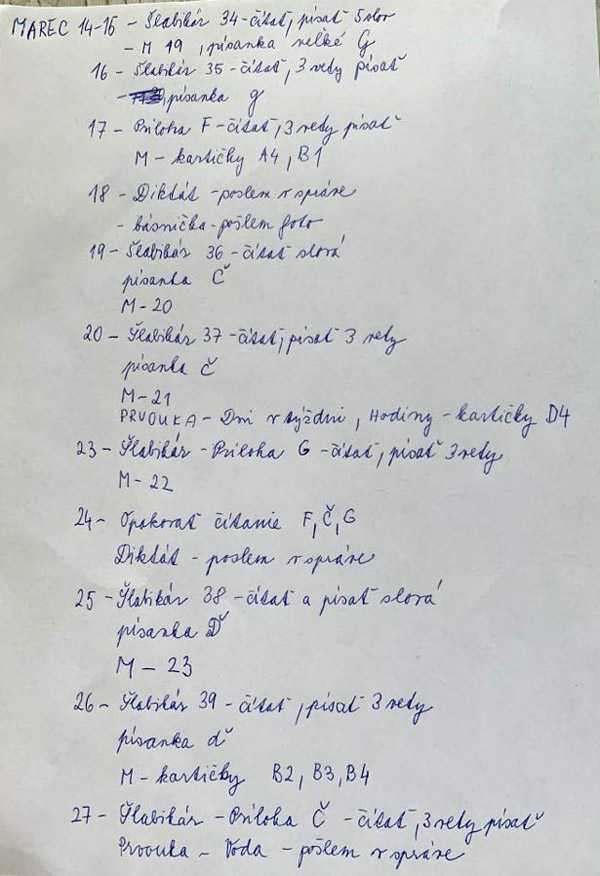 MAREC 14-15 - Šlabikár 34 - čítať, písať 5 slov
- M 19, písanka veľké G
16 - Šlabikár 35 - čítať, 3 vety písať
- písanka g
17 - Príloha F - čítať, 3 vety písať
M - kartičky A4, B1
18 - Diktát - pošlem v správe
- básnička - pošlem foto
19 - Šlabikár 36 - čítať slová
písanka Č
M - 20
20 - Šlabikár 37 - čítať, písať 3 vety
písanka č
M - 21
PRVOUKA - Dni v týždni, Hodiny - kartičky D4
23 - Šlabikár - Príloha G - čítať, písať 3 vety
M - 22
24 - Opakovať čítanie F, Č, G
Diktát - pošlem v správe
25 - Šlabikár 38 - čítať a písať slová
písanka Ď
M - 23
26 - Šlabikár 39 - čítať, písať 3 vety
písanka ď
M - kartičky B2, B3, B4
27 - Šlabikár - Príloha Č - čítať, 3 vety písať
Prvouka - Voda - pošlem v správe